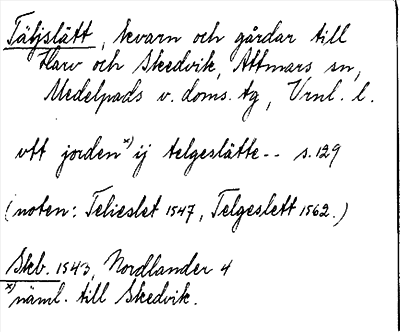 Täljslätt, kvarn och gårdar till
Harv och Skedvik, Attmars sn,
Medelpads v. doms. tg, Vrnl. l.
vtt jorden x) ij telgeslätte-- s. 129
(noten: Telieslet 1547, Telgeslett 1562.)
Skb. 1543, Nordlander 4
x) näml. till Skedvik.